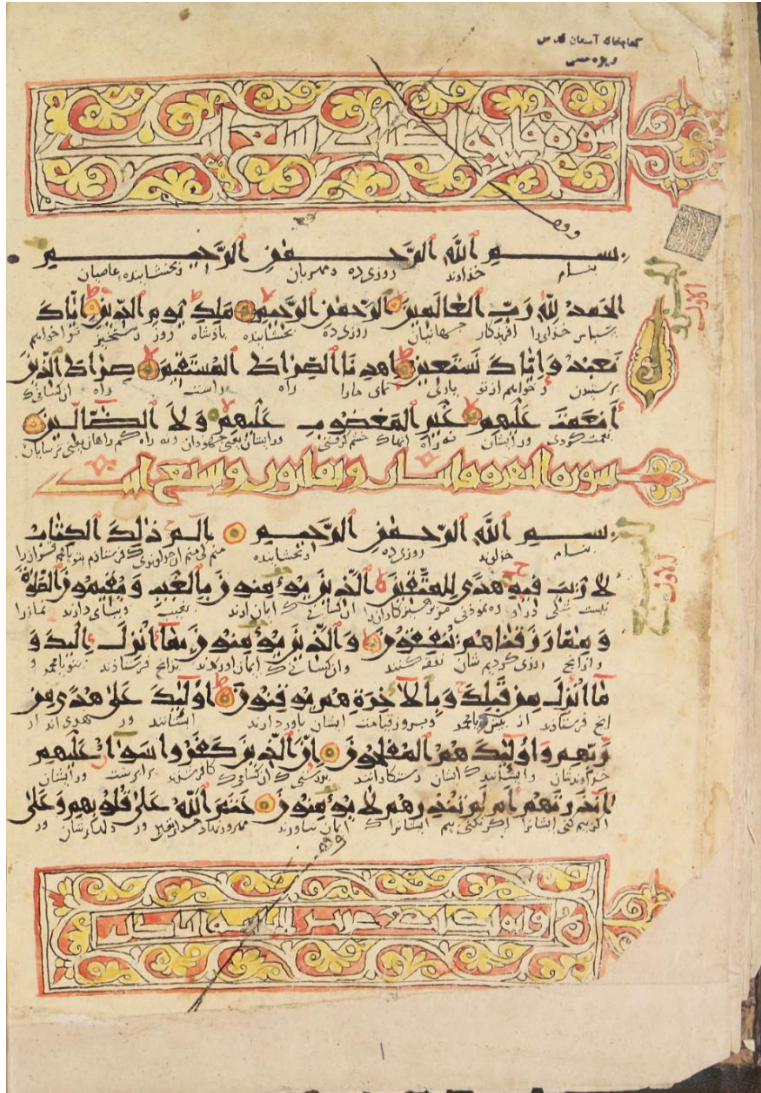 کتابخانه آستان قدس
سورة فاتحة الكتاب سبع آيات
بسم الله الرحمن الرحيم
بنام خداوند روزی ده و مهربان و بخشاینده عاصیان
الجزو
الاول
الحمد لله رب العالمين الرحمن الرحيم ملك يوم الدين اياك
سپاس خدای را آفریدگار جهانیان روزی ده بخشاینده پادشاه روز رستخیز ترا خواهیم
نعبد واياك نستعين اهدنا الصراط المستقيم صراط الذين
پرستیدن و خواهیم از تو یاری نمای ما را راه راست راه آن کسانی ک
أنعمت عليهم غير المغضوب عليهم ولا الضالين
نعمت کردی ور ایشان نه راه آنها ک خشم گرفتی ور ایشان یعنی جهودان و نه راه گم راهان یعنی ترسایان
سورة البقرة مائتان وثمانون وسبع آيات
بسم الله الرحمن الرحيم الم ذلك الكتاب
بنام خداوند روزی ده و بخشاینده
السبع
الاول
لا ريب فيه هدى للمتقين الذين يؤمنون بالغيب ويقيمون الصلوة
نیست شکی در او پرهیزکاران را آن کسانی ک ایمان آورند بغیب و بپای دارند نماز را
ومما رزقناهم ينفقون والذين يؤمنون بما أنزل إليك و
و از آنچ روزی کردیم شان نفقه کنند و آن کسانی ک ایمان آوردند بدانچ فرستادند بتو یا محمد و
ما أنزل من قبلك وبالاخرة هم يوقنون اولئك على هدى من
آنچ فرستادند از پیش تو یا محمد و بروز قیامت ایشان باور دارند ایشانند ور هدی اند از
ربهم واولئك هم المفلحون ان الذين كفروا سواء عليهم
خداوندشان و ایشانند ک ایشان رستگارانند بدرستی ک آن کسانی ک کافر شدند برابرست ور ایشان
ءانذرتهم أم لم تنذرهم لا يؤمنون ختم الله على قلوبهم وعلى
اگر بیم کنی ایشانرا اگر نکنی بیم ایشانرا ک ایمان نیاورند مهر ور نهاد خدای ور دلهاشان ور